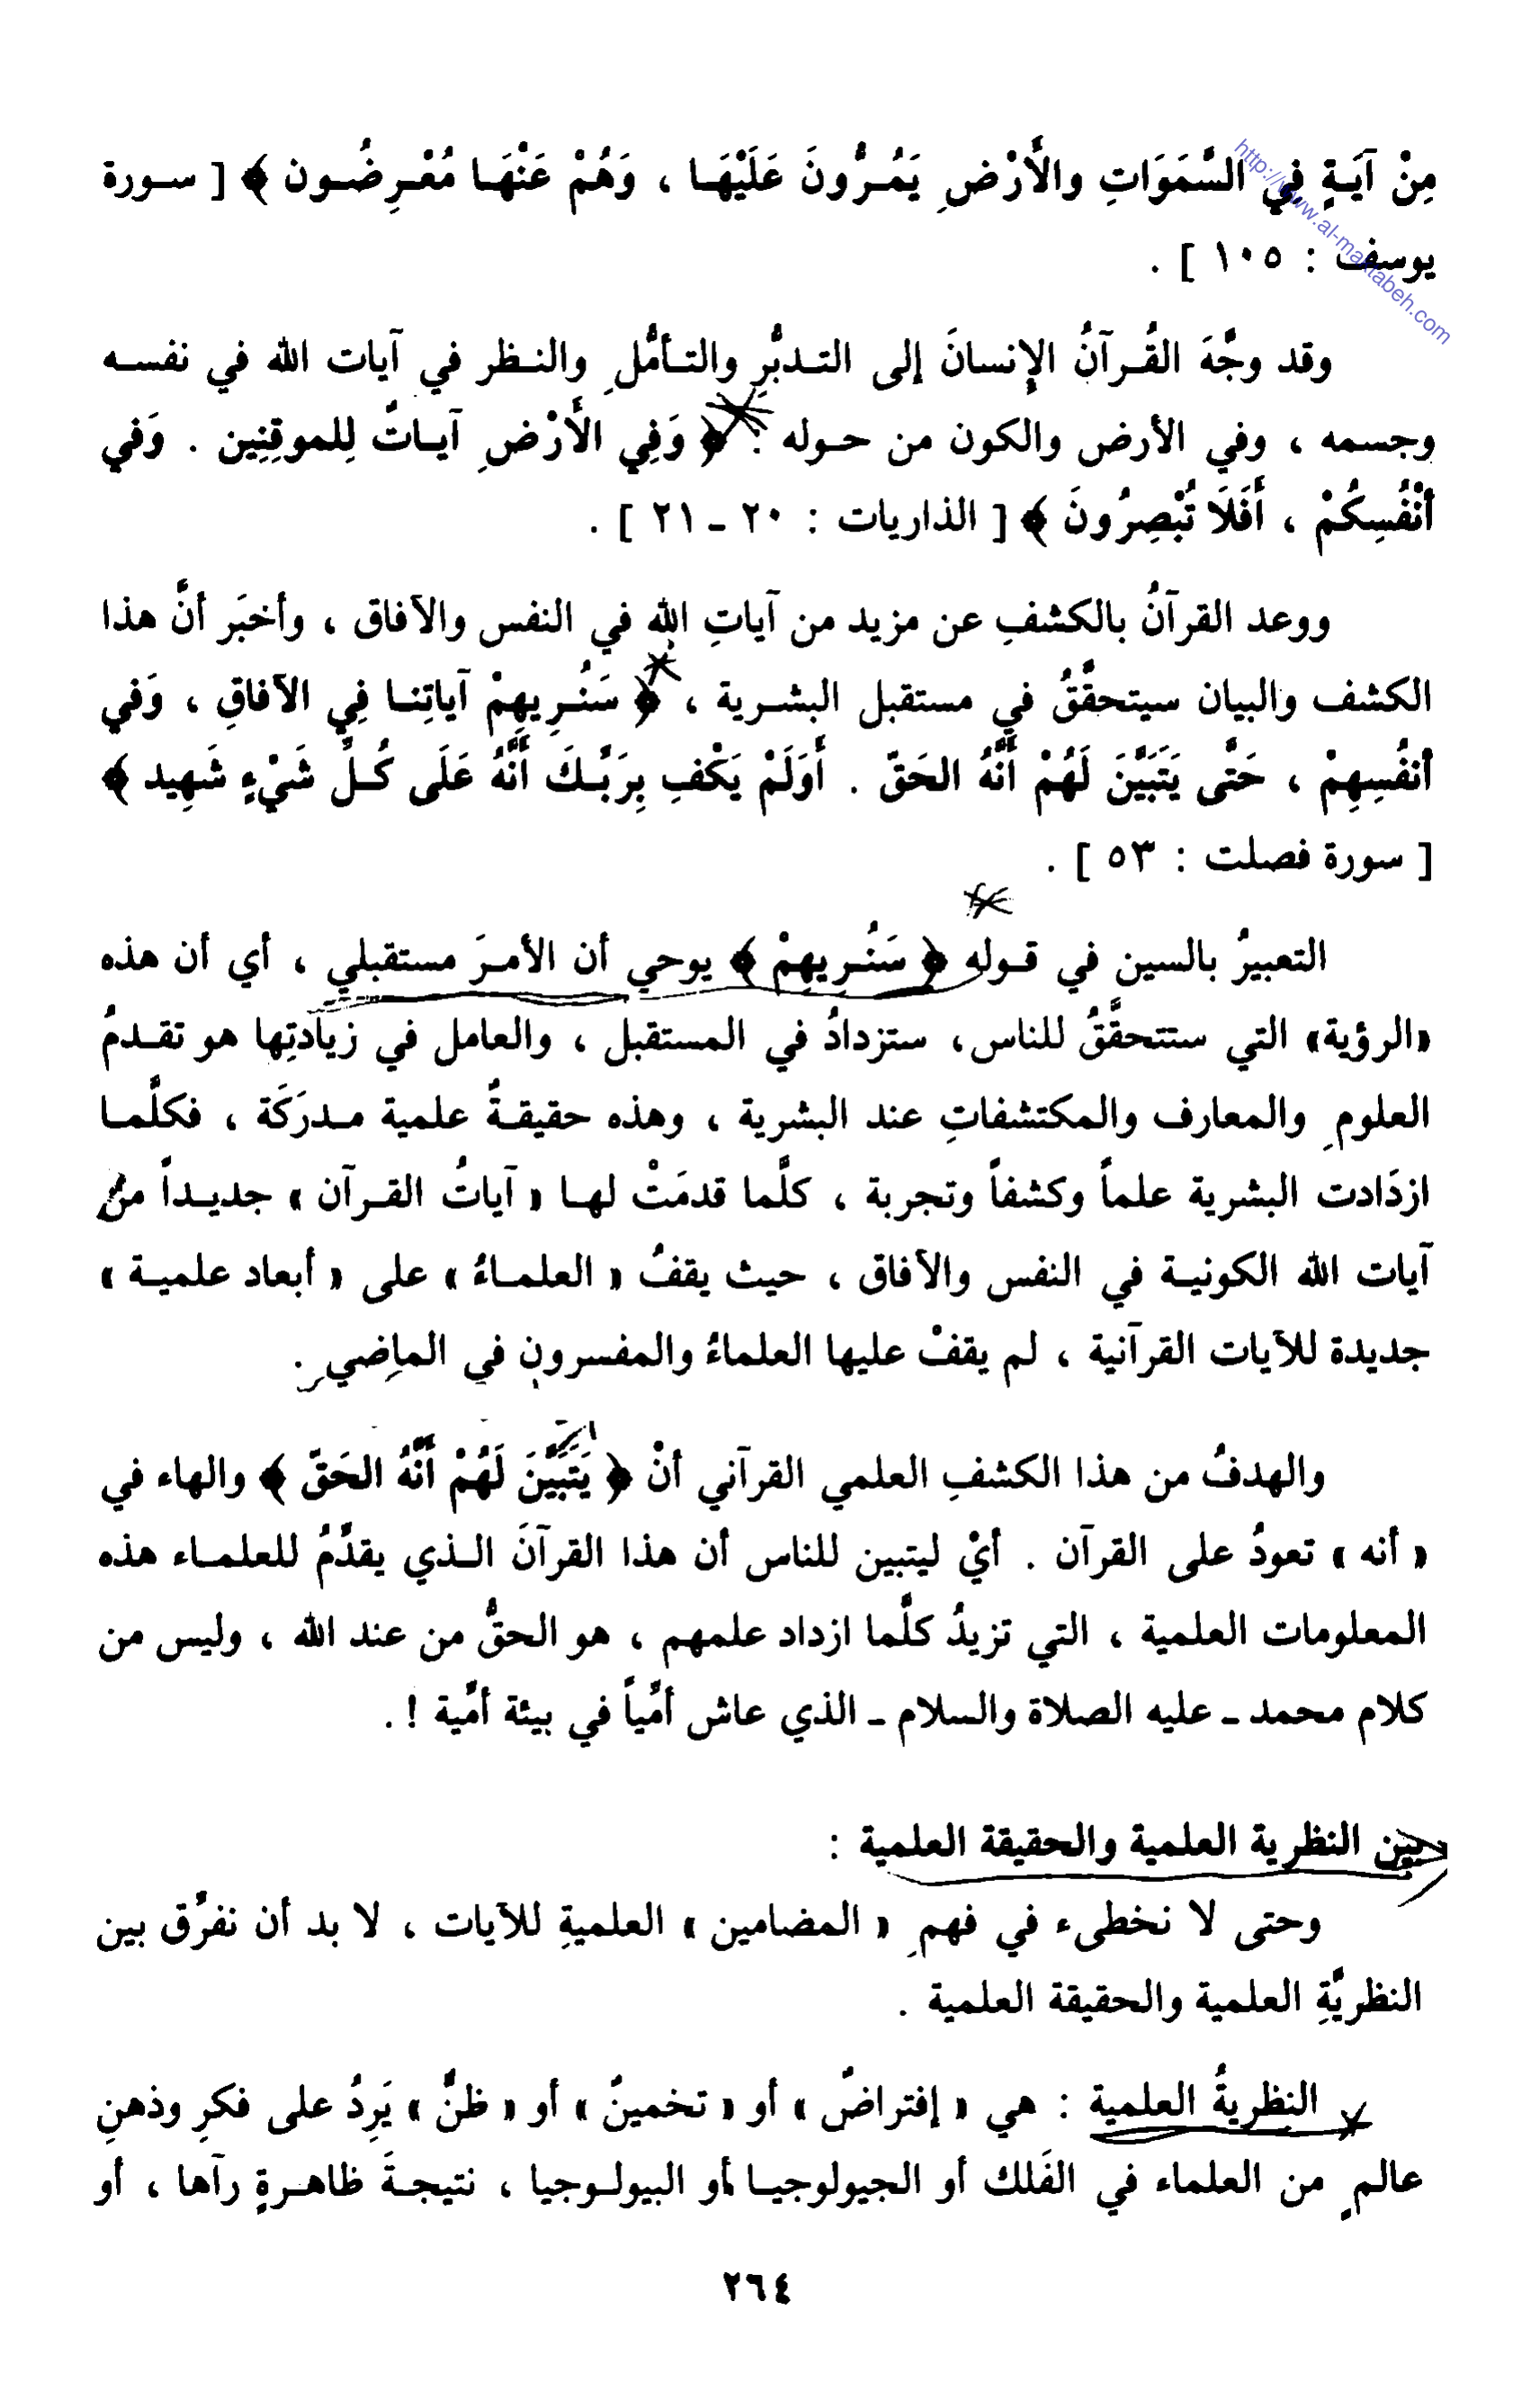 مِنْ آيَـةٍ فِي السَّمَوَاتِ والأَرْضِ يَمُـرُّونَ عَلَيْهَـا ، وَهُمْ عَنْهَـا مُعْـرِضُـون ﴾ [ سـورة
يوسف : ١٠٥ ] .
وقد وجَّهَ القُـرآنُ الإِنسانَ إلى التـدبُّرِ والتـأمُّلِ والنـظر في آيات الله في نفسـه
وجسمه ، وفي الأرض والكون من حـوله : ﴿ وَفِي الأَرْضِ آيـاتٌ لِلموقِنِين . وَفي
أَنْفُسِكُمْ ، أَفَلَا تُبْصِرُونَ ﴾ [ الذاريات : ٢٠ ـ ٢١ ] .
ووعد القرآنُ بالكشفِ عن مزيد من آياتِ الله في النفس والآفاق ، وأخبَر أنَّ هذا
الكشف والبيان سيتحقَّقُ في مستقبل البشـرية ، ﴿ سَنُـرِيهِمْ آياتِنـا فِي الآفاقِ ، وَفي
أنفُسِهِمْ ، حَتَّى يَتَبَيَّنَ لَهُمْ أَنَّهُ الحَقّ . أَوَلَمْ يَكْفِ بِرَبِّـكَ أَنَّهُ عَلَى كُـلِّ شَيْءٍ شَهِيد ﴾
[ سورة فصلت : ٥٣ ] .
التعبيرُ بالسين في قـوله ﴿ سَنُـرِيهِمْ ﴾ يوحي أن الأمـرَ مستقبلي ، أي أن هذه
«الرؤية» التي ستتحقَّقُ للناس، ستزدادُ في المستقبل ، والعامل في زيادتِها هو تقـدمُ
العلومِ والمعارف والمكتشفاتِ عند البشرية ، وهذه حقيقـةُ علمية مـدرَكَة ، فكلَّمـا
ازدَادت البشرية علماً وكشفاً وتجربة ، كلَّما قدمَتْ لهـا « آياتُ القـرآن » جديـداً من
آيات الله الكونيـة في النفس والآفاق ، حيث يقفُ « العلمـاءُ » على « أبعاد علميـة »
جديدة للآيات القرآنية ، لم يقفْ عليها العلماءُ والمفسرون في الماضي .
والهدفُ من هذا الكشفِ العلمي القرآني أنْ ﴿ يَتَبَيَّنَ لَهُمْ أَنَّهُ الحَقّ ﴾ والهاء في
« أنه » تعودُ على القرآن . أيْ ليتبين للناس أن هذا القرآنَ الـذي يقدِّمُ للعلمـاء هذه
المعلومات العلمية ، التي تزيدُ كلَّما ازداد علمهم ، هو الحقُّ من عند الله ، وليس من
كلام محمد ـ عليه الصلاة والسلام ـ الذي عاش أمِّياً في بيئة أمِّية ! .
بين النظرية العلمية والحقيقة العلمية :
وحتى لا نخطىء في فهمِ « المضامين » العلميةِ للآيات ، لا بد أن نفرِّق بين
النظريَّةِ العلمية والحقيقة العلمية .
النظريةُ العلمية : هي « إفتراضٌ » أو « تخمينٌ » أو « ظنٌّ » يَرِدُ على فكرِ وذهنِ
عالمٍ من العلماء في الفَلك أو الجيولوجيـا أو البيولـوجيا ، نتيجـةَ ظاهـرةٍ رآها ، أو
٢٦٤
http://www.al-maktabeh.com